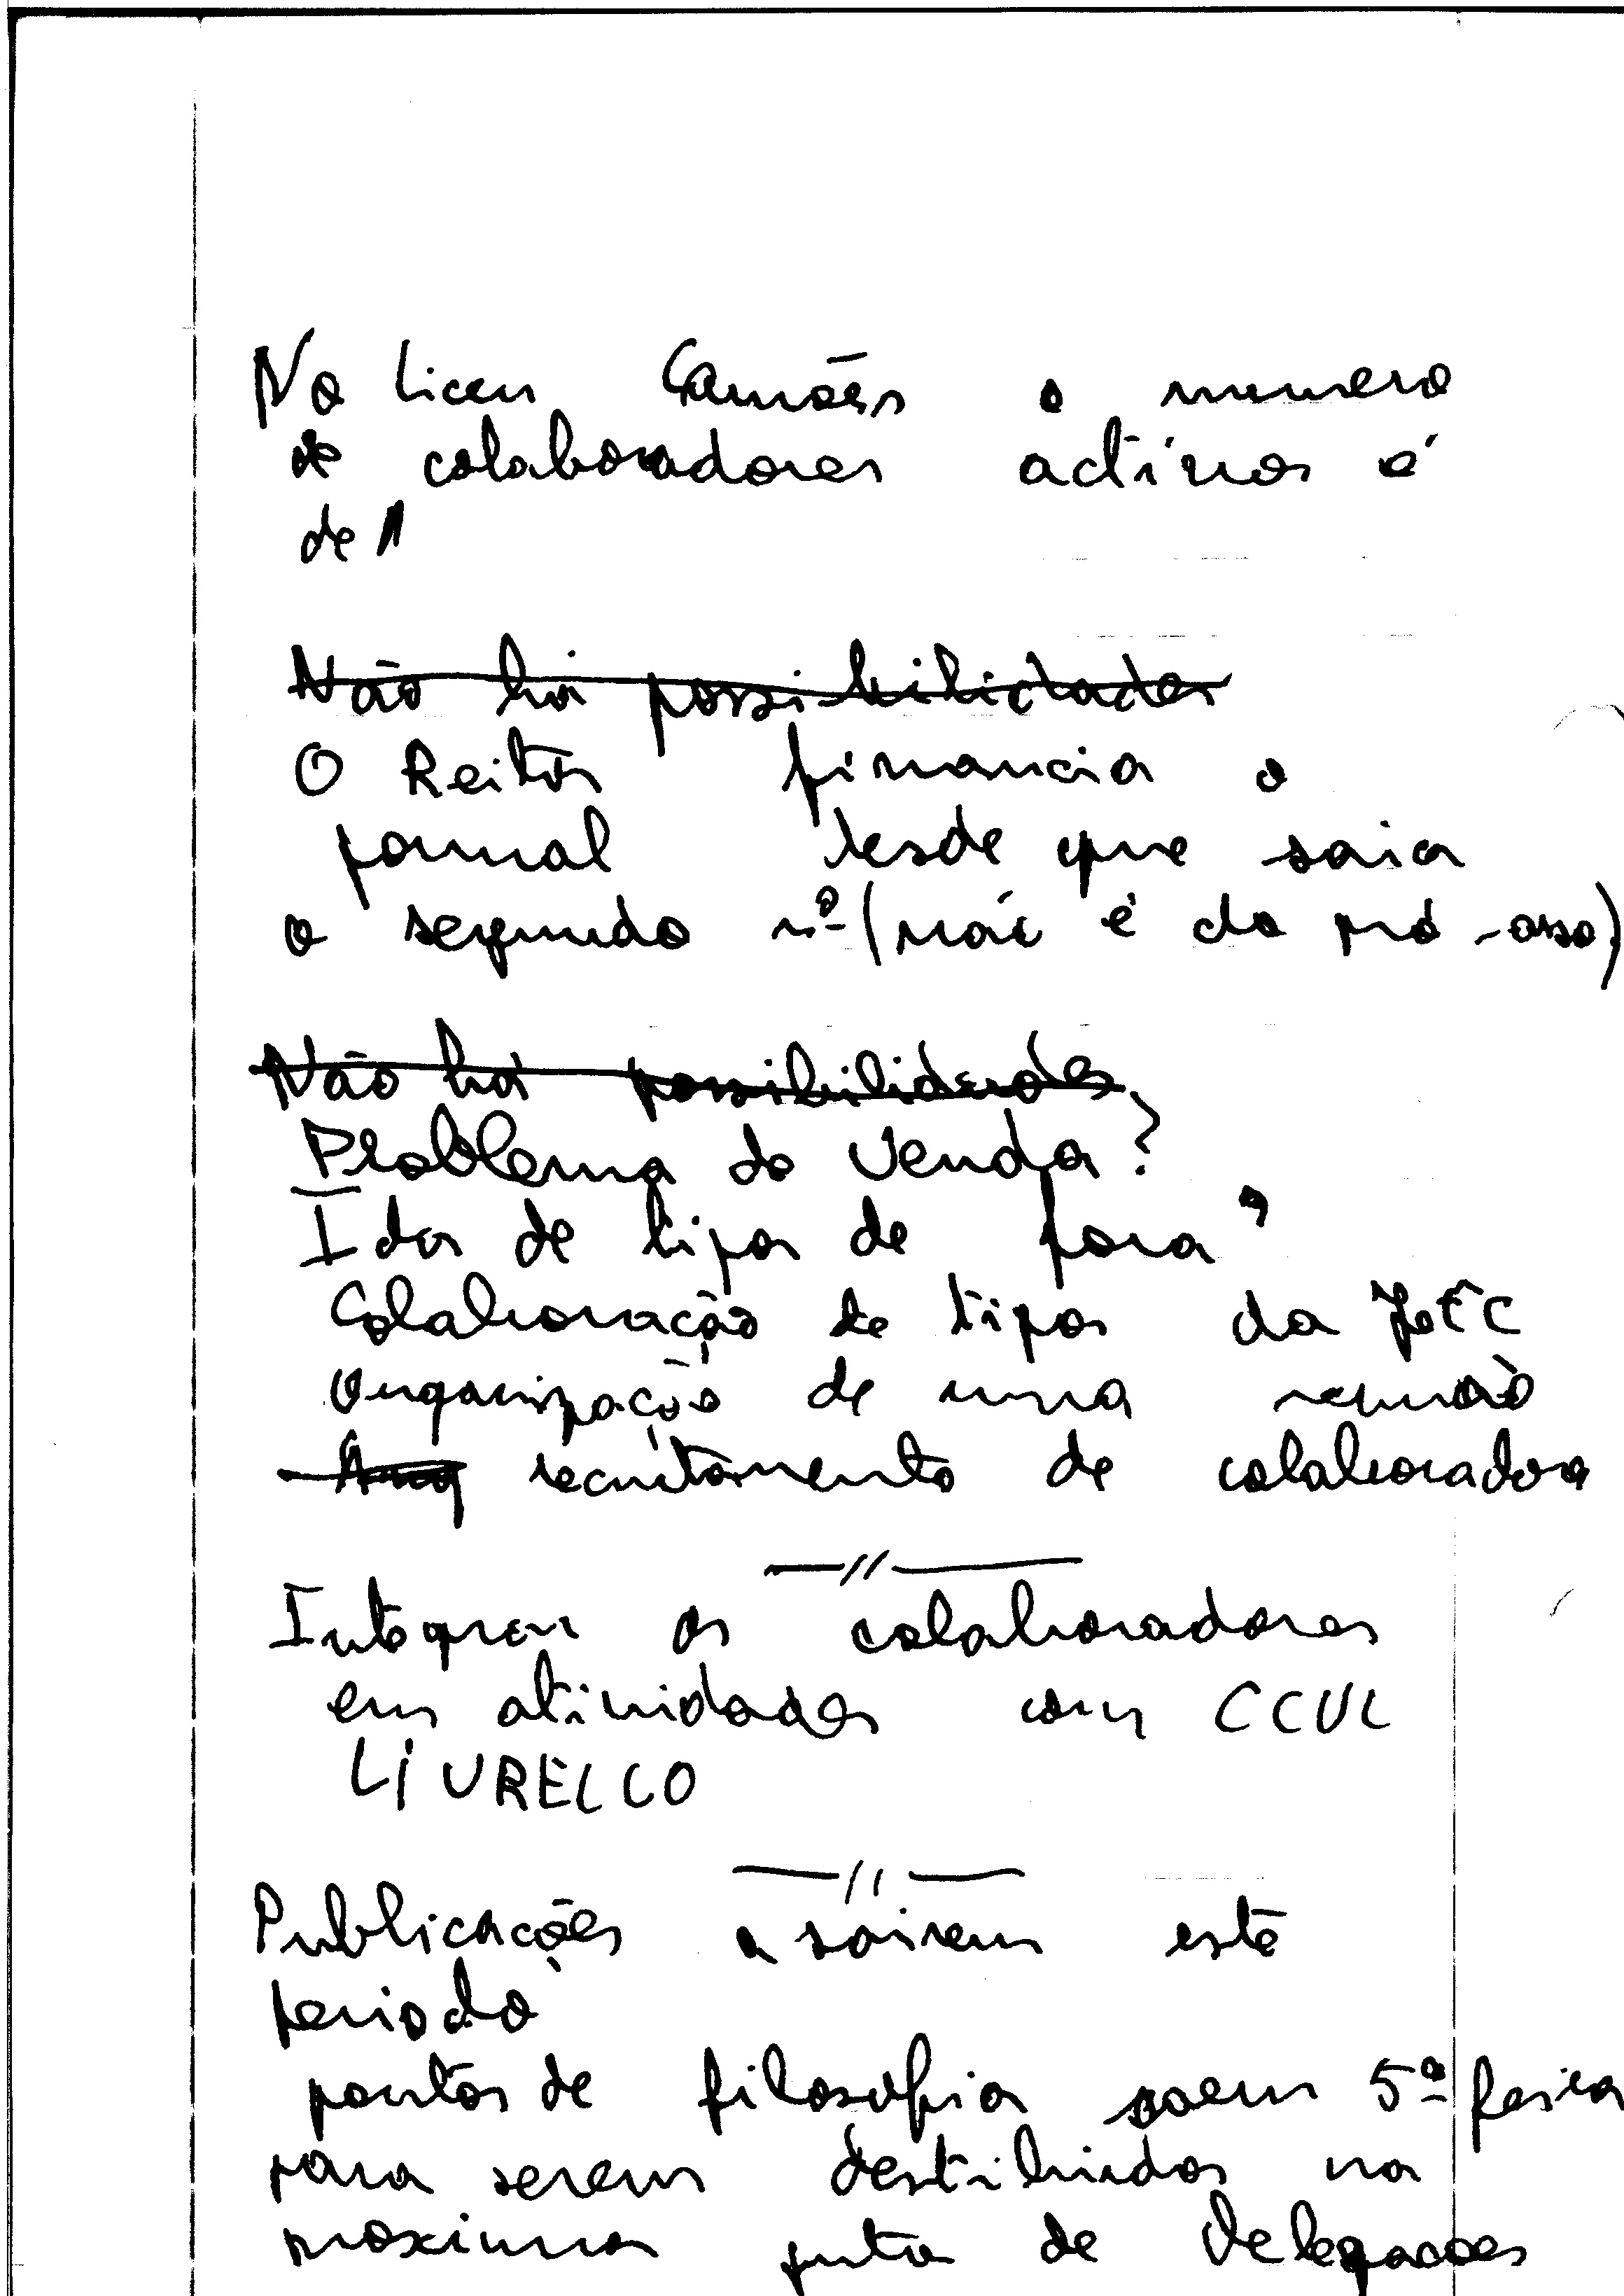 No Liceu Camões o numero
de colaboradores activos é
de 1
Não há possibilidades
O Reitor financia o
jornal desde que saia
o segundo nº (não é da pró-asso)
Não há possibilidades
Problema da Venda?
Ida de tipos de fora?
Colaboração de tipos da JEC
organização de uma reunião
recrutamento de colaboradores
—//—
Integrar os colaboradores
em atividades com CCUL
LIVRELCO
—//—
Publicações a sairem este
periodo
pontos de filosofia saem 5ª feira
para serem destribuidos na
proxima junta de Delegacoes